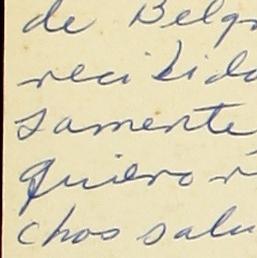 de Belgr
recibido
samente,
quiero r
chos salu